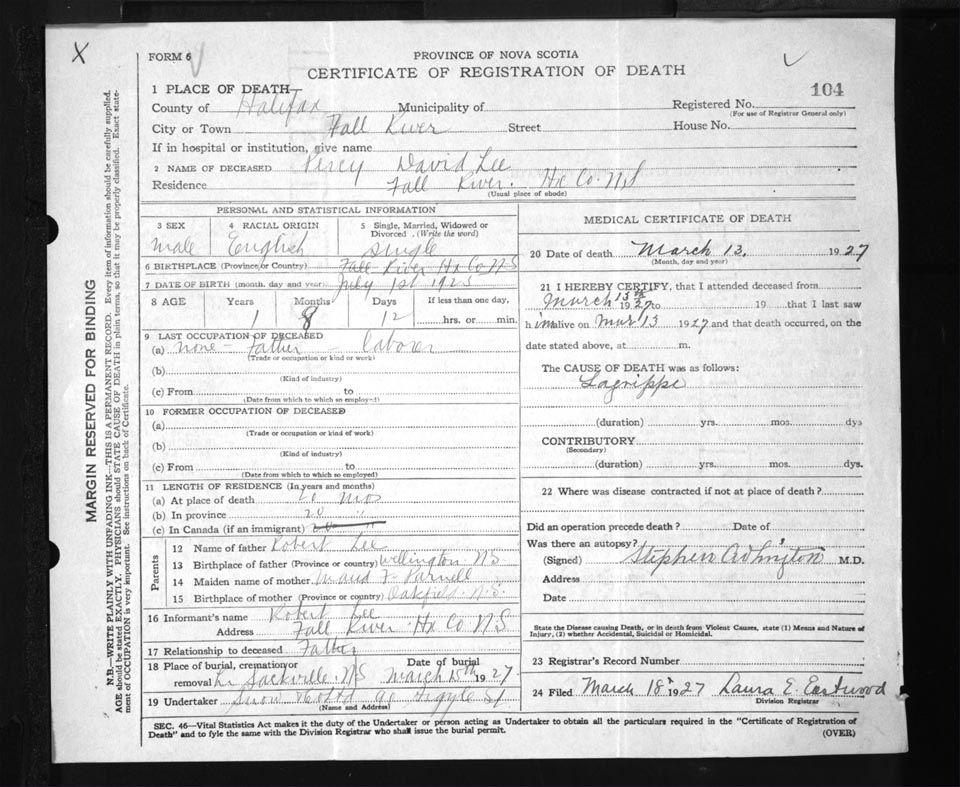 X
FORM 6
PROVINCE OF NOVA SCOTIA
CERTIFICATE OF REGISTRATION OF DEATH
104
1 PLACE OF DEATH—
County of Halifax Municipality of
Registered No.
(For use of Registrar General only)
City or Town Fall River Street House No.
If in hospital or institution, give name
2 NAME OF DECEASED Percy David Lee
Residence Fall River. Hx Co. NS
(Usual place of abode)
PERSONAL AND STATISTICAL INFORMATION
3 SEX male
4 RACIAL ORIGIN English
5 Single, Married, Widowed or Divorced. (Write the word) single
6 BIRTHPLACE (Province or Country) Fall River Hx Co NS
7 DATE OF BIRTH (month, day and year) July 1st 1925
8 AGE Years Months Days If less than one day,
1 8 12 hrs. or min.
9 LAST OCCUPATION OF DECEASED
(a) none - Father - laborer
(Trade or occupation or kind of work)
(b)
(Kind of industry)
(c) From to
(Date from which to which so employed)
10 FORMER OCCUPATION OF DECEASED
(a)
(Trade or occupation or kind of work)
(b)
(Kind of industry)
(c) From to
(Date from which to which so employed)
11 LENGTH OF RESIDENCE (In years and months)
(a) At place of death 20 mos
(b) In province 20 "
(c) In Canada (if an immigrant) 20 "
Parents
12 Name of father Robert Lee
13 Birthplace of father (Province or country) Wellington NS
14 Maiden name of mother Maud F. Parnell
15 Birthplace of mother (Province or country) Oakfield. N.S.
16 Informant's name Robert Lee
Address Fall River Hx Co NS
17 Relationship to deceased Father
18 Place of burial, cremation or removal Lr Sackville. NS
Date of burial March 15th 1927
19 Undertaker Snow & Co Ltd 90 Argyle St
(Name and Address)
MEDICAL CERTIFICATE OF DEATH
20 Date of death March 13, 1927
(Month, day and year)
21 I HEREBY CERTIFY, that I attended deceased from
March 13th 1927 to 19 that I last saw
him alive on Mar 13 1927 and that death occurred, on the
date stated above, at m.
The CAUSE OF DEATH was as follows:
Lagrippe
(duration) yrs. mos. dys
CONTRIBUTORY
(Secondary)
(duration) yrs. mos. dys.
22 Where was disease contracted if not at place of death?
Did an operation precede death? Date of
Was there an autopsy?
(Signed) Stephen M.D.
Address
Date
State the Disease causing Death, or in death from Violent Causes, state (1) Means and Nature of
Injury, (2) whether Accidental, Suicidal or Homicidal.
23 Registrar's Record Number
24 Filed March 18th 1927 Laura E. Eastwood
Division Registrar
SEC. 46—Vital Statistics Act makes it the duty of the Undertaker or person acting as Undertaker to obtain all the particulars required in the "Certificate of Registration of
Death" and to fyle the same with the Division Registrar who shall issue the burial permit.
(OVER)
MARGIN RESERVED FOR BINDING
N.B.—WRITE PLAINLY WITH UNFADING INK—THIS IS A PERMANENT RECORD. Every item of information should be carefully supplied.
AGE should be stated EXACTLY. PHYSICIANS should STATE CAUSE OF DEATH in plain terms, so that it may be properly classified. Exact state-
ment of OCCUPATION is very important. See instructions on back of Certificate.